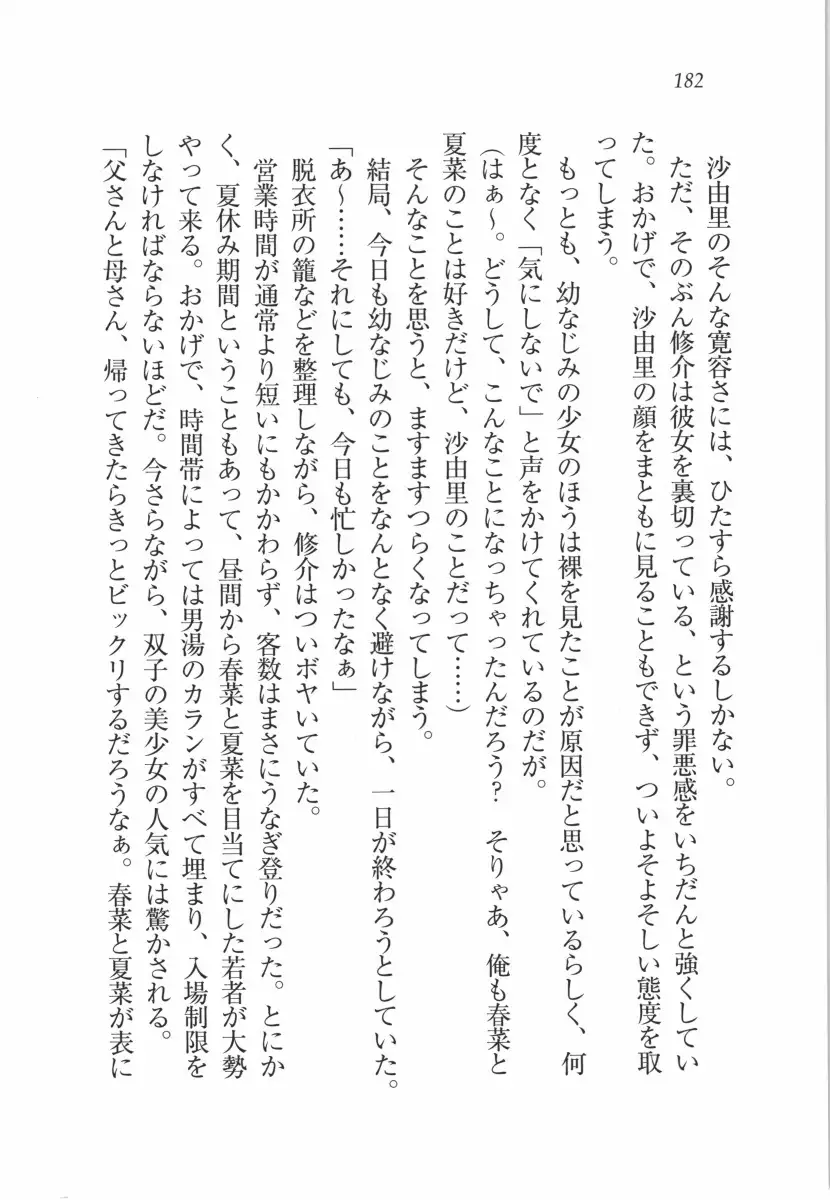 182
沙由里のそんな寛容さには、ひたすら感謝するしかない。
ただ、そのぶん修介は彼女を裏切っている、という罪悪感をいちだんと強くしてい
た。おかげで、沙由里の顔をまともに見ることもできず、ついよそよそしい態度を取
ってしまう。
もっとも、幼なじみの少女のほうは裸を見たことが原因だと思っているらしく、何
度となく「気にしないで」と声をかけてくれているのだが。
(はぁ〜。どうして、こんなことになっちゃったんだろう? そりゃあ、俺も春菜と
夏菜のことは好きだけど、沙由里のことだって……)
そんなことを思うと、ますますつらくなってしまう。
結局、今日も幼なじみのことをなんとなく避けながら、一日が終わろうとしていた。
「あ〜……それにしても、今日も忙しかったなぁ」
脱衣所の籠などを整理しながら、修介はついボヤいていた。
営業時間が通常より短いにもかかわらず、客数はまさにうなぎ登りだった。とにか
く、夏休み期間ということもあって、昼間から春菜と夏菜を目当てにした若者が大勢
やって来る。おかげで、時間帯によっては男湯のカランがすべて埋まり、入場制限を
しなければならないほどだ。今さらながら、双子の美少女の人気には驚かされる。
「父さんと母さん、帰ってきたらきっとビックリするだろうなぁ。春菜と夏菜が表に